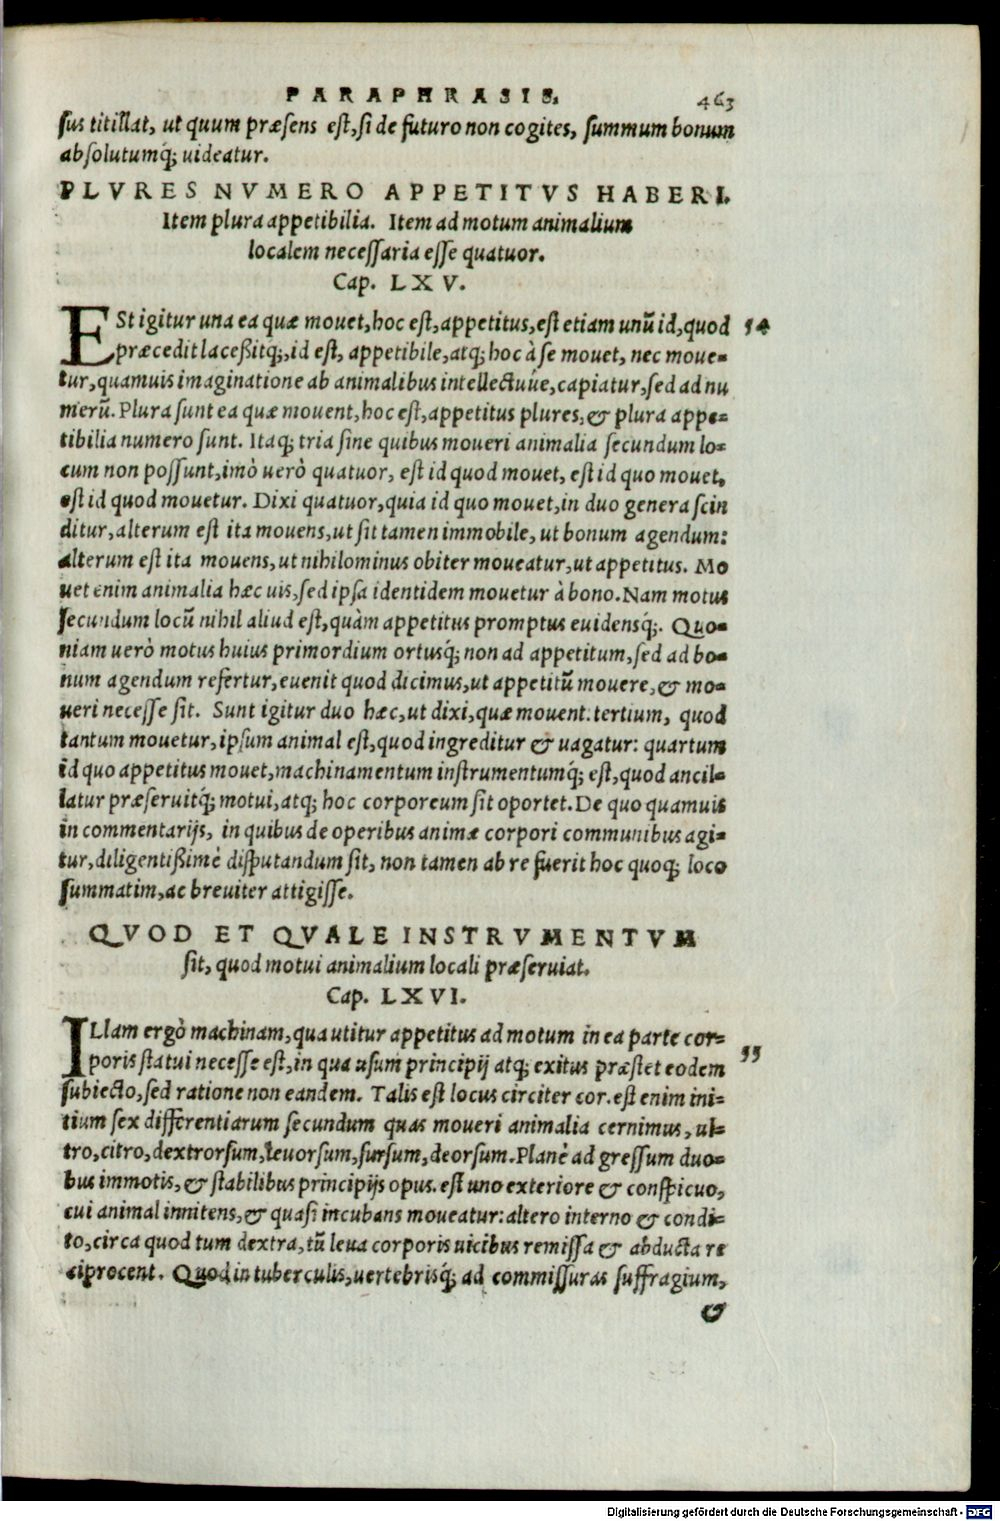 PARAPHRASIS. 463
sus titillat, ut quum præsens est, si de futuro non cogites, summum bonum
absolutumq́; uideatur.
PLVRES NVMERO APPETITVS HABERI.
Item plura appetibilia. Item ad motum animalium
localem necessaria esse quatuor.
Cap. LXV.
ESt igitur una ea quæ mouet, hoc est, appetitus, est etiam unũ id, quod 54
præcedit laceßitq́;, id est, appetibile, atq; hoc à se mouet, nec moue-
tur, quamuis imaginatione ab animalibus intellectuúe, capiatur, sed ad nu
merũ. Plura sunt ea quæ mouent, hoc est, appetitus plures, & plura appe-
tibilia numero sunt. Itaq; tria sine quibus moueri animalia secundum lo-
cum non possunt, imò uerò quatuor, est id quod mouet, est id quo mouet,
est id quod mouetur. Dixi quatuor, quia id quo mouet, in duo genera scin
ditur, alterum est ita mouens, ut sit tamen immobile, ut bonum agendum:
alterum est ita mouens, ut nihilominus obiter moueatur, ut appetitus. Mo
uet enim animalia hæc uis, sed ipsa identidem mouetur à bono. Nam motus
secundum locũ nihil aliud est, quàm appetitus promptus euidensq́;. Quo-
niam uerò motus huius primordium ortusq́; non ad appetitum, sed ad bo-
num agendum refertur, euenit quod dicimus, ut appetitũ mouere, & mo-
ueri necesse sit. Sunt igitur duo hæc, ut dixi, quæ mouent. tertium, quod
tantum mouetur, ipsum animal est, quod ingreditur & uagatur: quartum
id quo appetitus mouet, machinamentum instrumentumq́; est, quod ancil-
latur præseruitq́; motui, atq; hoc corporeum sit oportet. De quo quamuis
in commentarijs, in quibus de operibus animæ corpori communibus agi-
tur, diligentißimè disputandum sit, non tamen ab re fuerit hoc quoq; loco
summatim, ac breuiter attigisse.
QVOD ET QVALE INSTRVMENTVM
sit, quod motui animalium locali præseruiat.
Cap. LXVI.
ILlam ergò machinam, qua utitur appetitus ad motum in ea parte cor-
poris statui necesse est, in qua usum principij atq; exitus præstet eodem 55
subiecto, sed ratione non eandem. Talis est locus circiter cor. est enim ini-
tium sex differentiarum secundum quas moueri animalia cernimus, ul-
tro, citro, dextrorsum, leuorsum, sursum, deorsum. Planè ad gressum duo-
bus immotis, & stabilibus principijs opus. est uno exteriore & conspicuo,
cui animal innitens, & quasi incubans moueatur: altero interno & condi-
to, circa quod tum dextra, tũ leua corporis uicibus remissa & abducta re
ciprocent. Quod in tuberculis, uertebrisq́; ad commissuras suffragium,
&
Digitalisierung gefördert durch die Deutsche Forschungsgemeinschaft - DFG